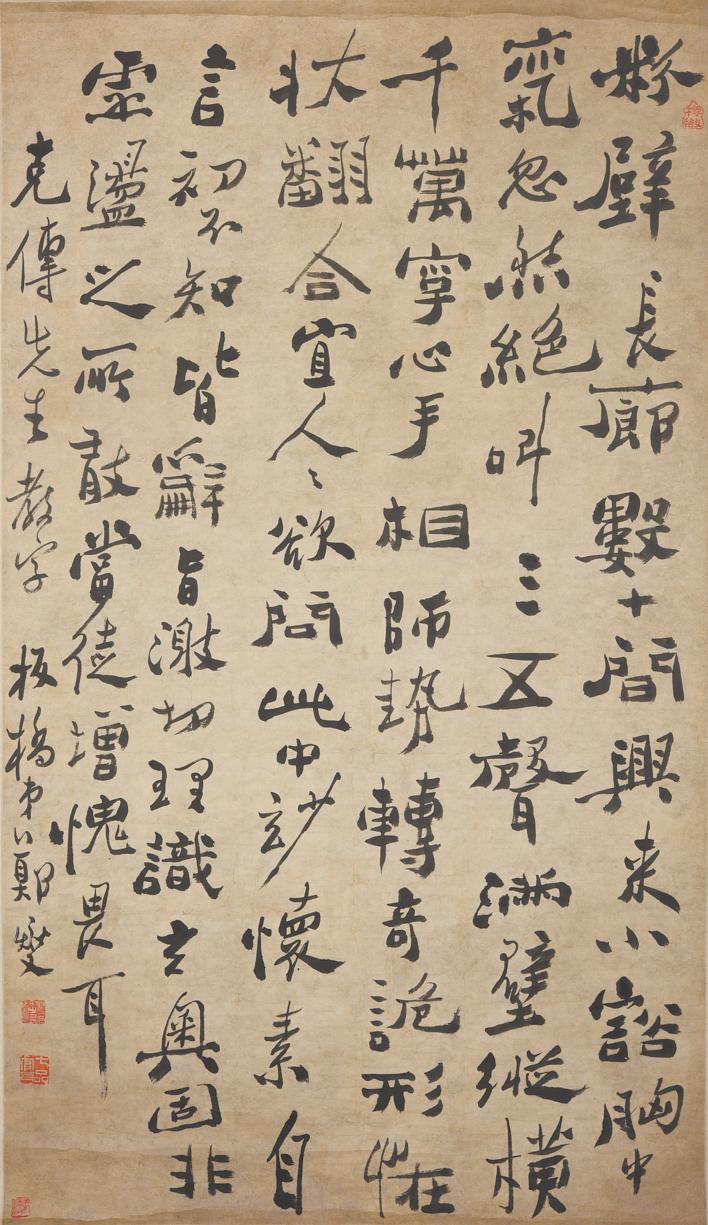 粉壁長廊數十間興來小豁胸中
氣忽然絕叫三五聲滿壁縱橫
千萬字心手相師勢轉奇詭形怪
狀翻合宜人〻欲問此中妙懷素自
言初不知皆辭旨激切理識玄奧固非
虛盪之所敢當徒增愧畏耳
克傳先生教字 板橋弟鄭燮